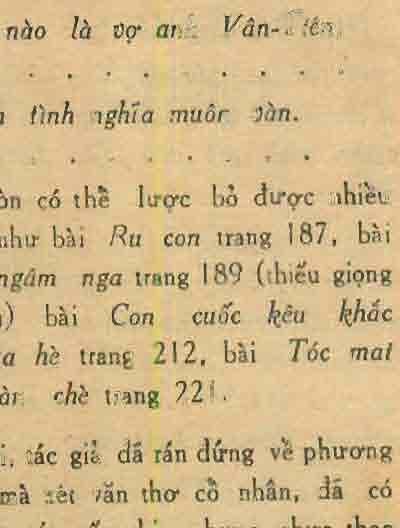 nào là vợ anh Vân-Tiên
. . . . . . . . .
tình nghĩa muôn vàn.
. . . . . . . .
òn có thể lược bỏ được nhiều
như bài Ru con trang 187, bài
ngâm nga trang 189 (thiếu giọng
) bài Con cuốc kêu khắc
a hè trang 212, bài Tóc mai
chè trang 221.
tác giả đã rán đứng về phương
mà xét văn thơ cổ nhân, đã có